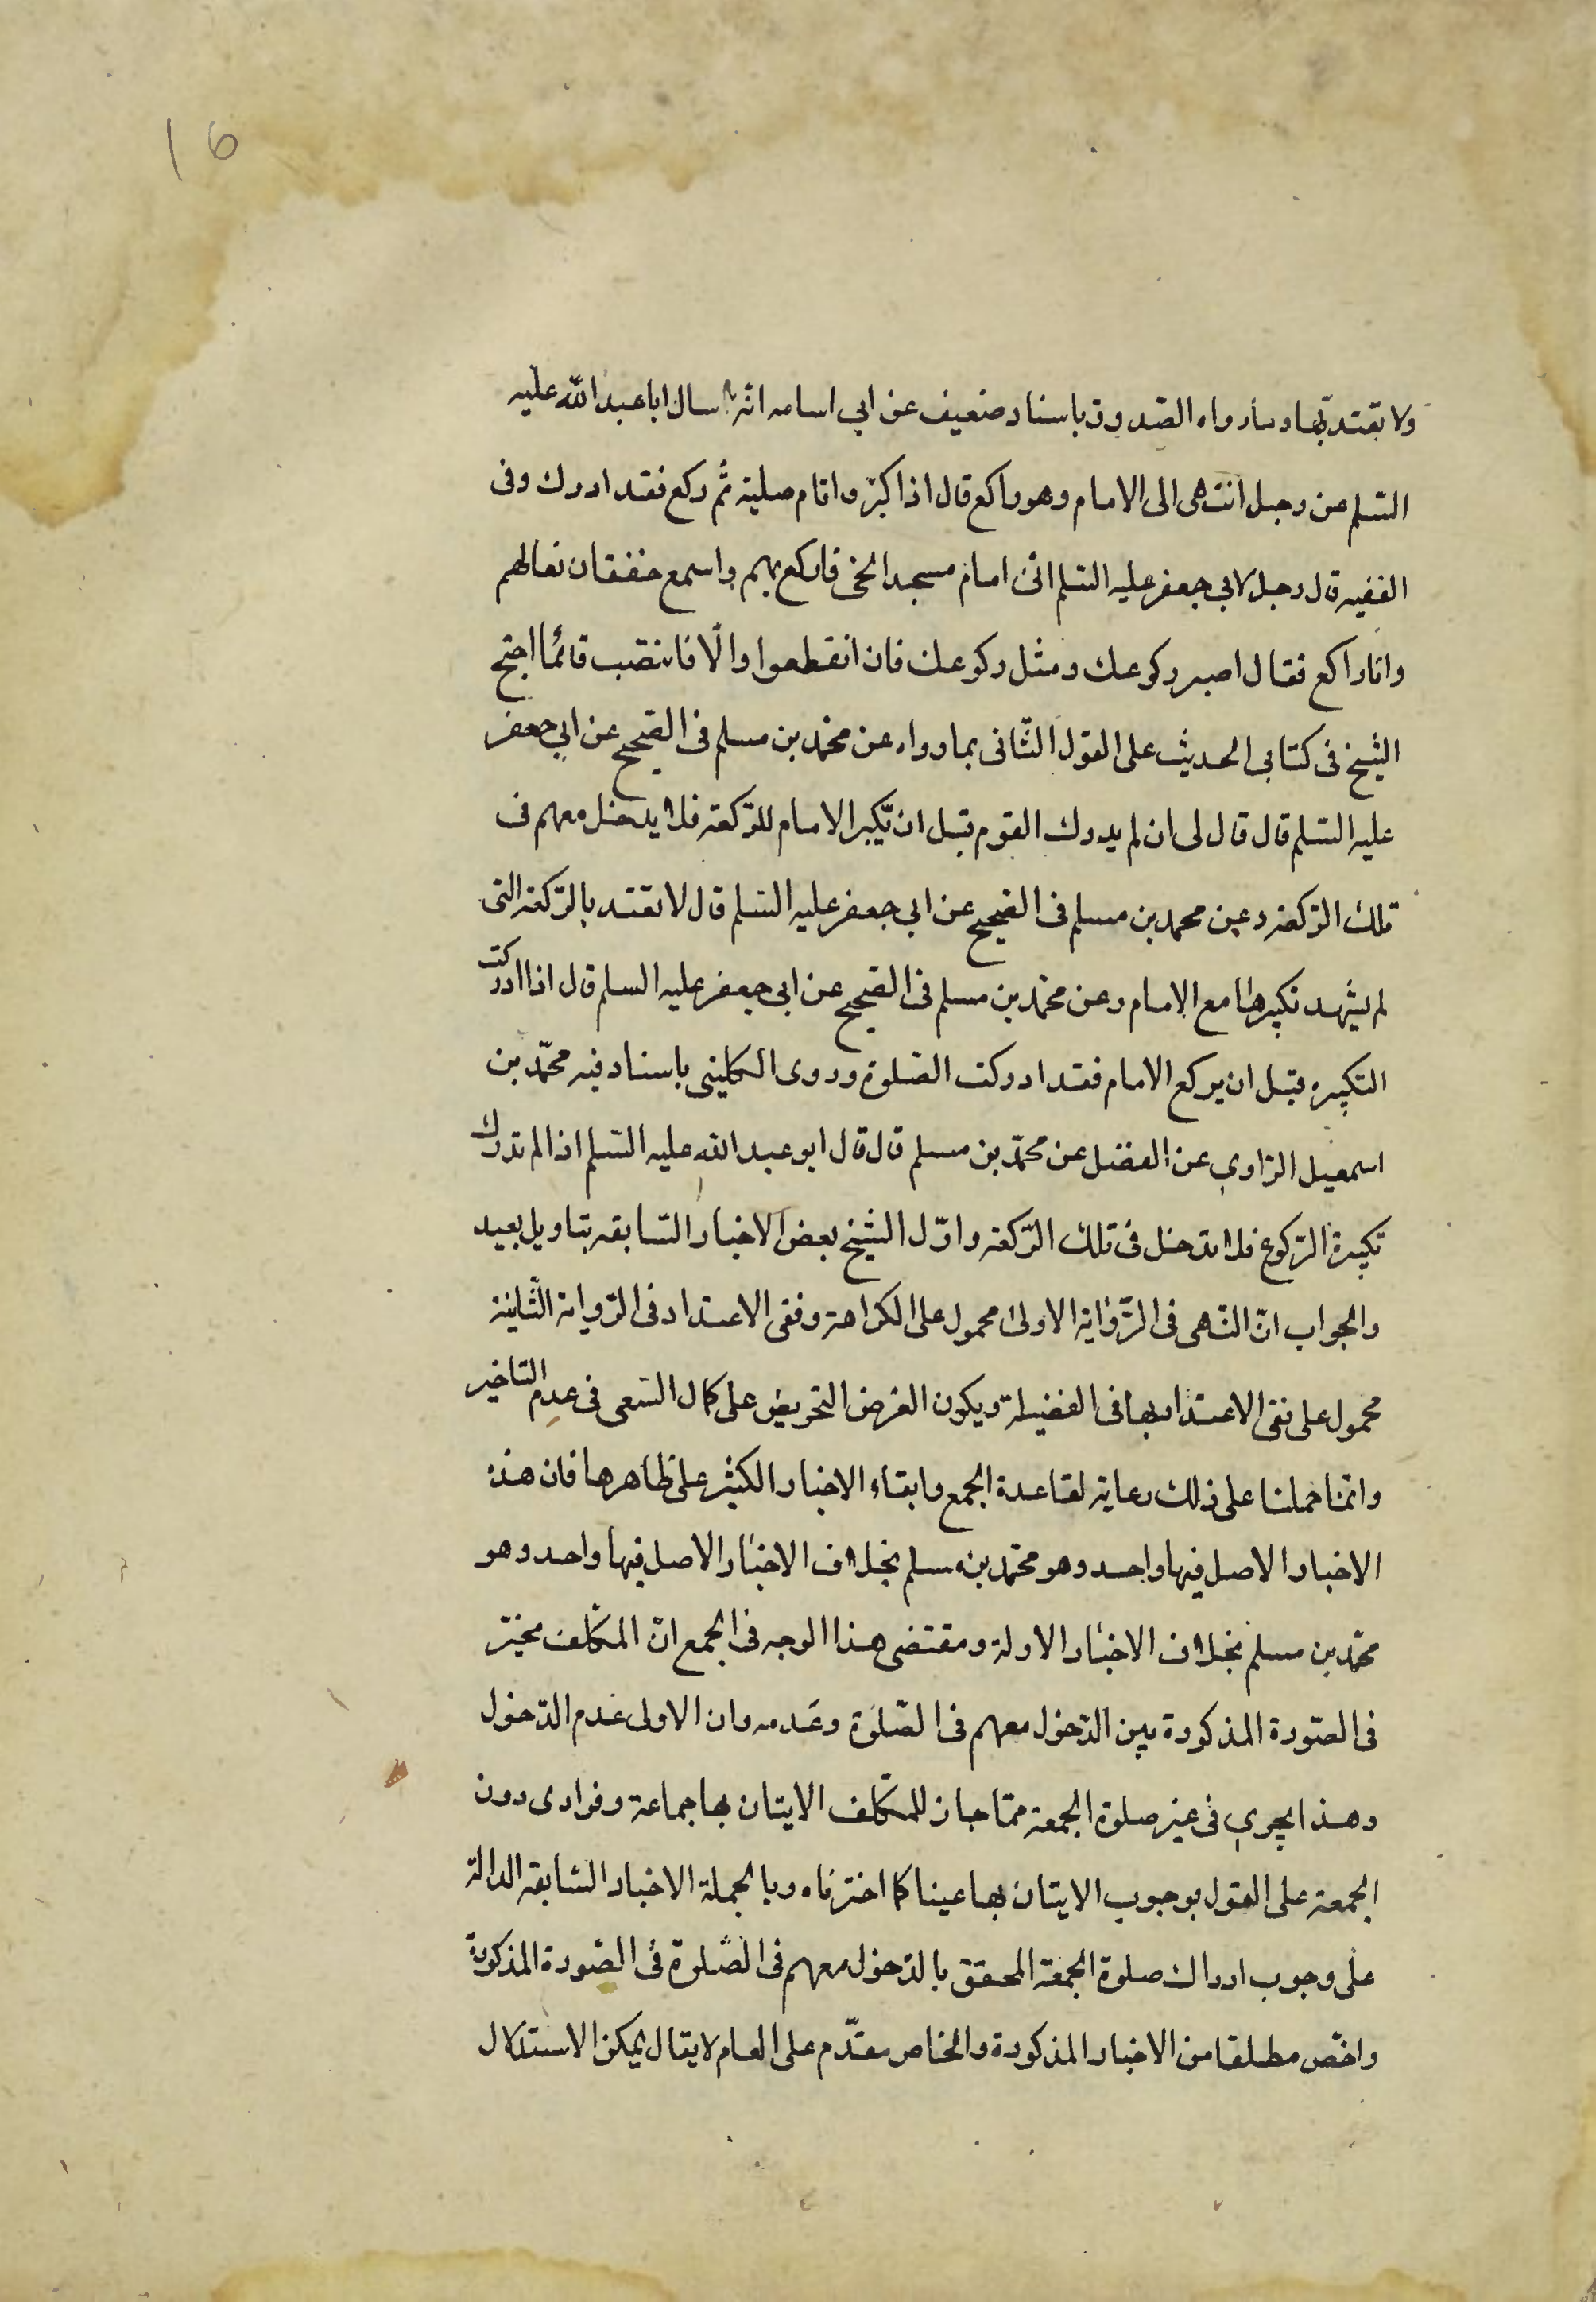 16
ولا تعتد بها وما رواه الصدوق باسناد ضعيف عن ابي اسامه انه سال ابا عبد الله عليه
السلم عن رجل انتهى الى الامام وهو راكع قال اذا كبر واقام صلبه ثم ركع فقد ادرك وفى
الفقيه قال رجل لابي جعفر عليه السلم انى امام مسجد الحى فاركع بهم واسمع خفقان نعالهم
وانا راكع فقال اصبر ركوعك ومثل ركوعك فان انقطعوا والا فانتصب قائما احتج
الشيخ فى كتابى الحديث على القول الثانى بما رواه عن محمد بن مسلم فى الصحيح عن ابي جعفر
عليه السلم قال قال لى ان لم يدرك القوم قبل ان يكبر الامام للركعة فلا يدخل معهم فى
تلك الركعة وعن محمد بن مسلم فى الصحيح عن ابي جعفر عليه السلم قال لا تعتد بالركعة التى
لم يشهد تكبيرها مع الامام وعن محمد بن مسلم فى الصحيح عن ابي جعفر عليه السلم قال اذا ادركت
التكبيره قبل ان يركع الامام فقد ادركت الصلوة وروى الكلينى باسناد فيه محمد بن
اسمعيل الراوي عن الفضل عن محمد بن مسلم قال قال ابو عبد الله عليه السلم اذا لم تدرك
تكبيرة الركوع فلا تدخل فى تلك الركعة واول الشيخ بعض الاخبار السابقه بتاويل بعيد
والجواب ان النهى فى الرواية الاولى محمول على الكراهة ونفى الاعتداد فى الرواية الثانية
محمول على نفى الاعتداد بها فى الفضيلة ويكون الغرض التحريض على كمال السعى فى عدم التاخير
وانما حملنا على ذلك رعاية لقاعدة الجمع وابقاء الاخبار الكثير على ظاهرها فان هذه
الاخبار الاصل فيها واحد وهو محمد بن مسلم بخلاف الاخبار الاصل فيها واحد وهو
محمد بن مسلم بخلاف الاخبار الاولة ومقتضى هذا الوجه فى الجمع ان المكلف مخير
فى الصورة المذكورة بين الدخول معهم فى الصلوة وعدمه وان الاولى عدم الدخول
وهذا يجري فى غير صلوة الجمعة مما جاز للمكلف الايتان بها جماعة وفرادى دون
الجمعة على القول بوجوب الايتان بها عينا كما اخترناه وبالجملة الاخبار السابقه الدالة
على وجوب ادراك صلوة الجمعة المحقق بالدخول معهم فى الصلوة فى الصورة المذكورة
واخص مطلقا من الاخبار المذكورة والخاص مقدم على العام لا يقال يمكن الاستدلال